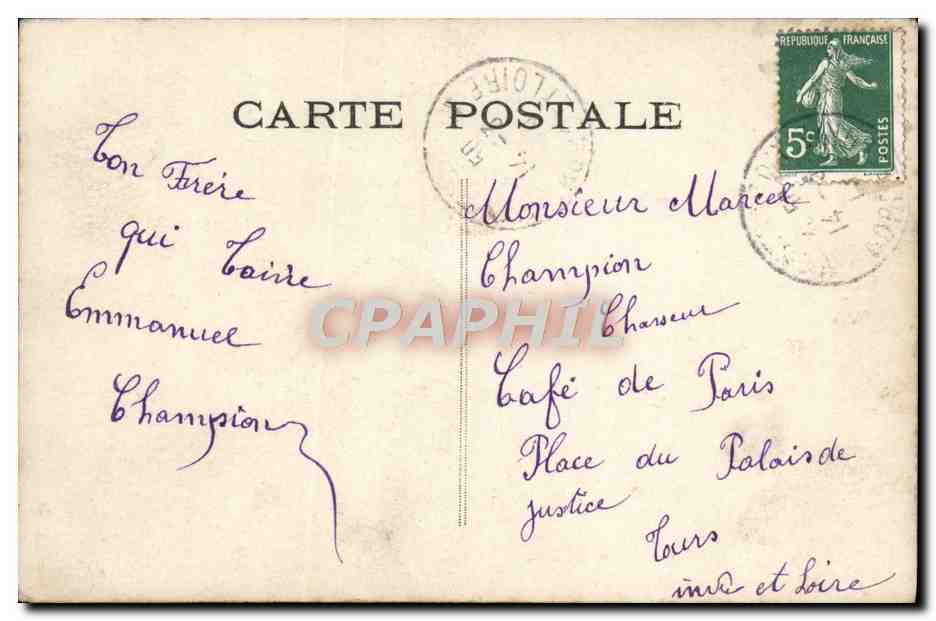 CARTE POSTALE
REPUBLIQUE FRANÇAISE
5c
POSTES
Ton Frère
qui t'aime
Emmanuel
Champion
Monsieur Marcel
Champion
Chasseur
Café de Paris
Place du Palais de
justice
Tours
et Loire
CPAPHIL